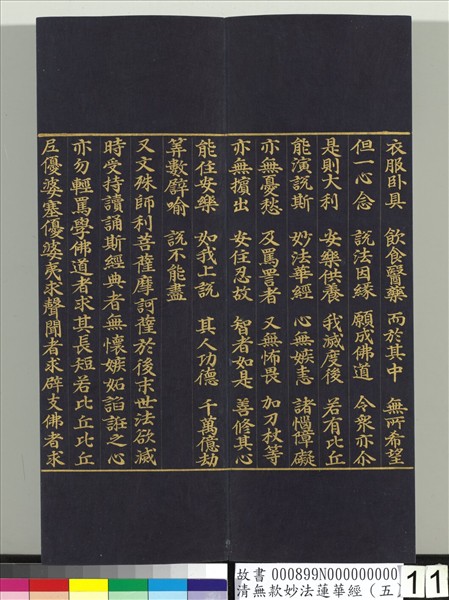 衣服臥具　飲食醫藥　而於其中　無所希望
但一心念　說法因緣　願成佛道　令衆亦尒
是則大利　安樂供養　我滅度後　若有比丘
能演說斯　妙法華經　心無嫉恚　諸惱障礙
亦無憂愁　及罵詈者　又無怖畏　加刀杖等
亦無擯出　安住忍故　智者如是　善修其心
能住安樂　如我上說　其人功德　千萬億劫
筭數譬喻　說不能盡
又文殊師利菩薩摩訶薩於後末世法欲滅
時受持讀誦斯經典者無懷嫉妬諂誑之心
亦勿輕罵學佛道者求其長短若比丘比丘
尼優婆塞優婆夷求聲聞者求辟支佛者求
故書 000899N000000000
清無款妙法蓮華經（五）
11